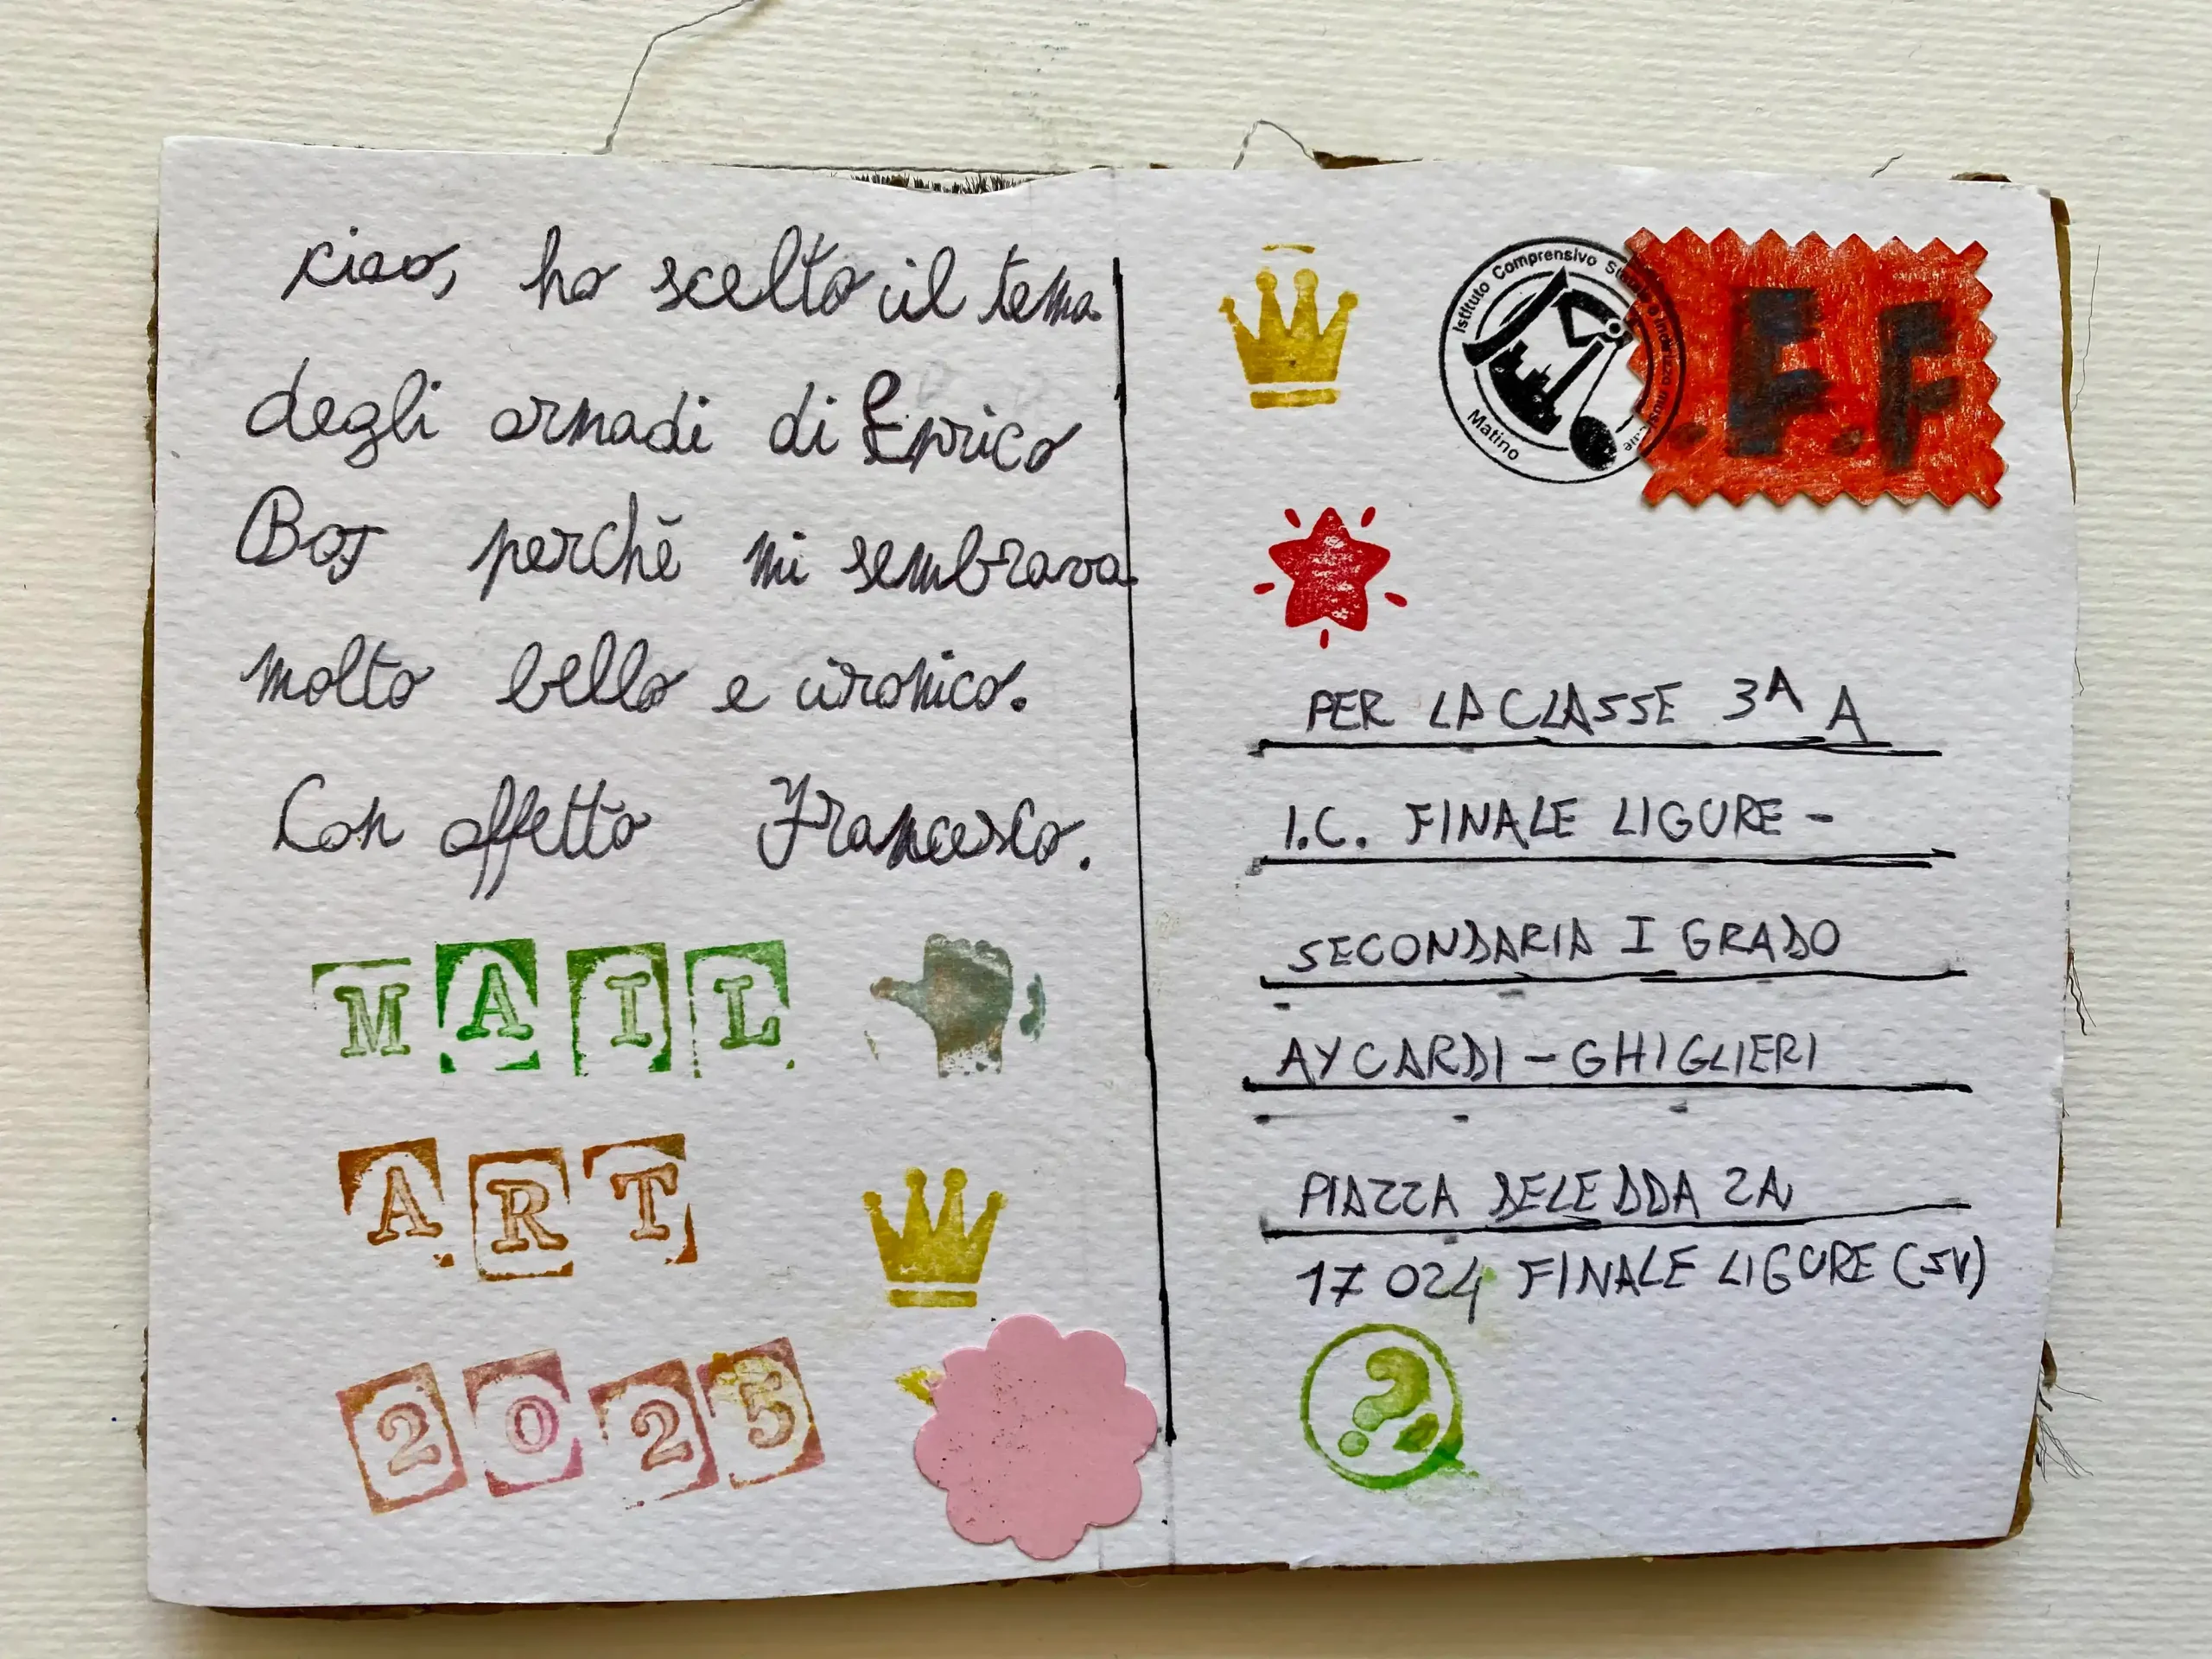 ciao, ho scelto il tema
degli armadi di Enrico
Boj perchè mi sembrava
molto bello e ironico.
Con affetto Francesco.
MAIL
ART
2025
Istituto Comprensivo Statale a indirizzo musicale
Matino
.F.F
PER LA CLASSE 3ᴬ A
I.C. FINALE LIGURE -
SECONDARIA I GRADO
AYCARDI - GHIGLIERI
PIAZZA DELEDDA 2A
17024 FINALE LIGURE (SV)
?